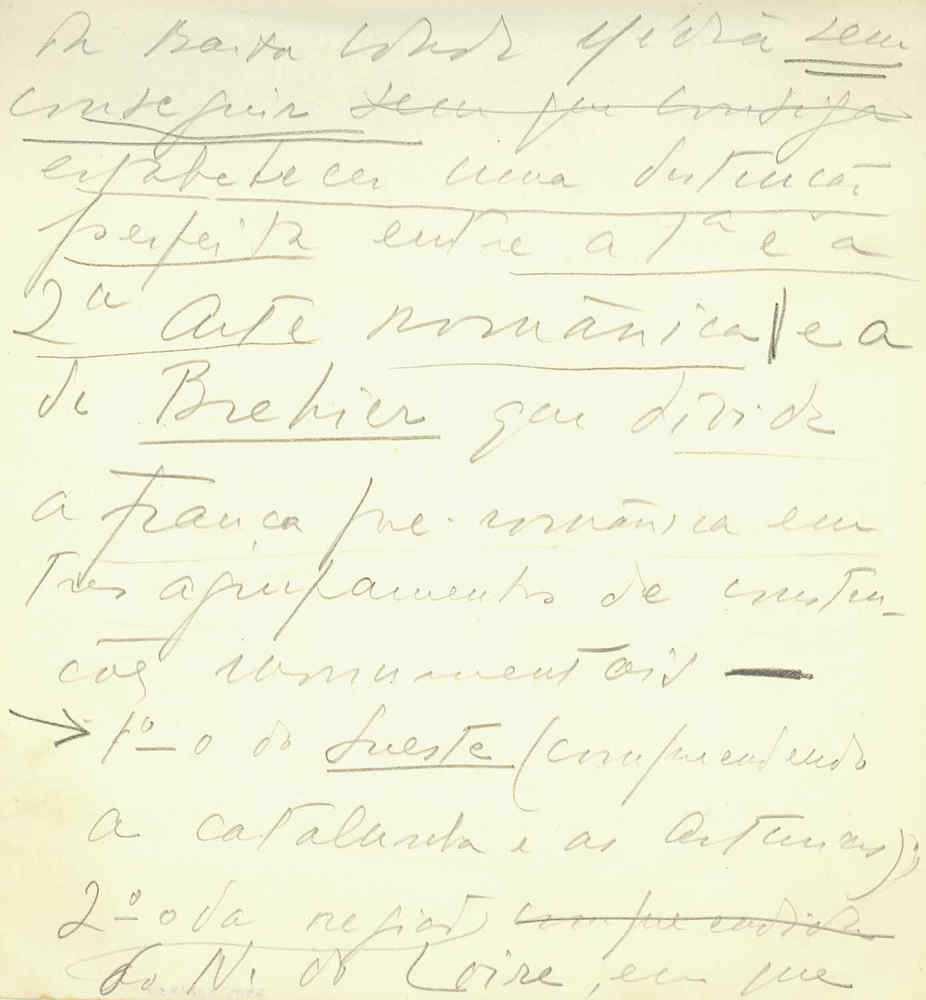 da Baixa Idade Média sem
conseguir sem que consiga
estabelecer uma distinção
perfeita entre a 1ª e a
2ª Arte românica | e a
de Brehier que divide
a França pre-românica em
tres agrupamentos de constru-
ções monumentais —
→ 1º - o do Sueste (comprendendo
a Catalunha e as Asturias);
2º - o da região comprendida
do N. do Loire, em que